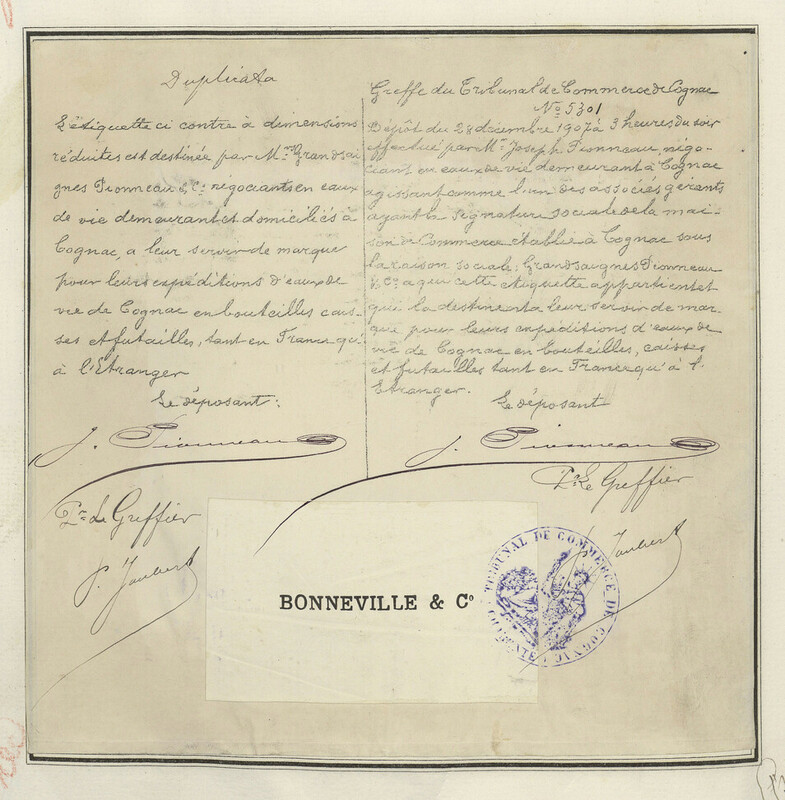 Duplicata
L'étiquette ci contre à dimensions
réduites est destinée par Mrs Grandsai
gnes Pionneau & Cie négociants en eaux
de vie demeurant et domiciliés à
Cognac, a leur servir de marque
pour leurs expéditions d'eaux de
vie de Cognac en bouteilles cais-
ses et futailles, tant en France qu'
à l'Etranger
Le déposant:
J. Pionneau
Pr Le Greffier
P. Joubert
Greffe du Tribunal de Commerce de Cognac
No 5301
Dépôt du 28 décembre 1907 à 3 heures du soir
effectué par Mr Joseph Pionneau, négo-
ciant en eaux de vie demeurant à Cognac
agissant comme l'un des associés gérants
ayant la signature sociale de la mai-
son de Commerce établie à Cognac sous
la raison sociale: Grandsaignes Pionneau
& Co a qui cette étiquette appartient et
qui la destinent a leur servir de mar-
que pour leurs expéditions d'eaux de
vie de Cognac en bouteilles, caisses
et futailles tant en France qu'à l'
Etranger.
Le déposant
J. Pionneau
Pr Le Greffier
P. Joubert
BONNEVILLE & Co
TRIBUNAL DE COMMERCE DE COGNAC
CHARENTE